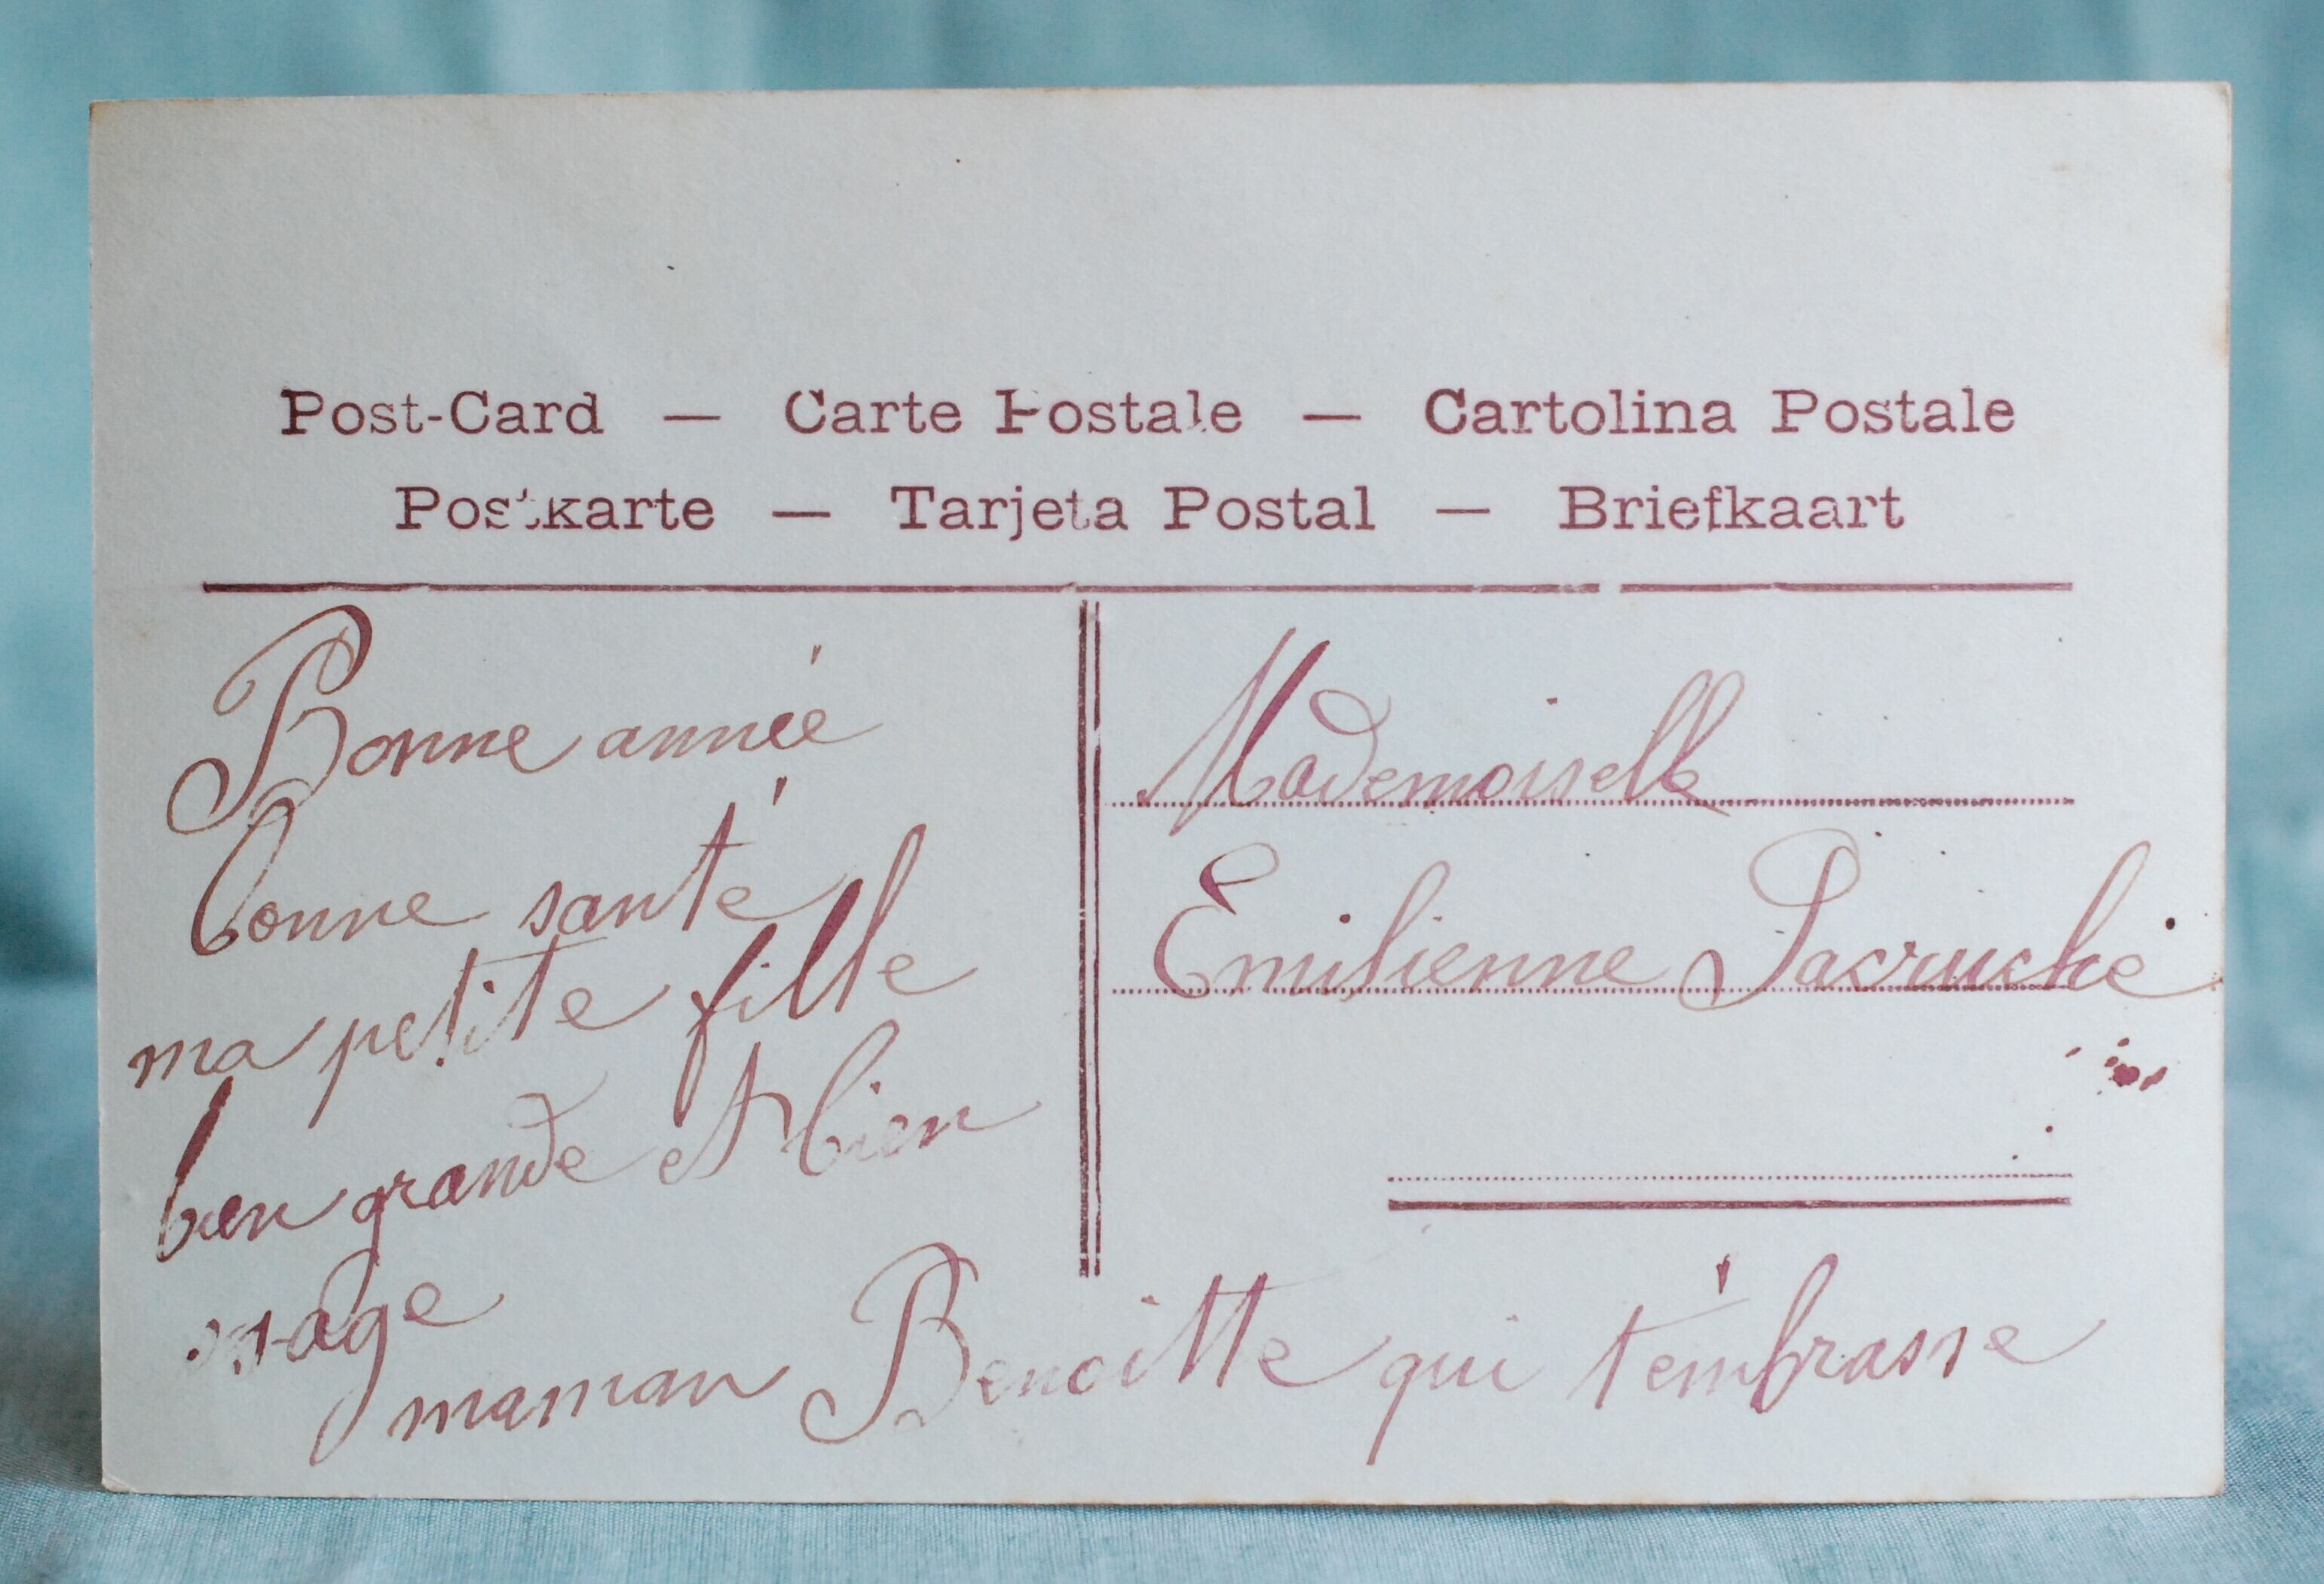 Post-Card — Carte Postale — Cartolina Postale
Postkarte — Tarjeta Postal — Briefkaart
Bonne année
bonne santé
ma petite fille
bien grande et bien
sage
maman Benoitte qui t'embrasse
Mademoiselle
Emilienne